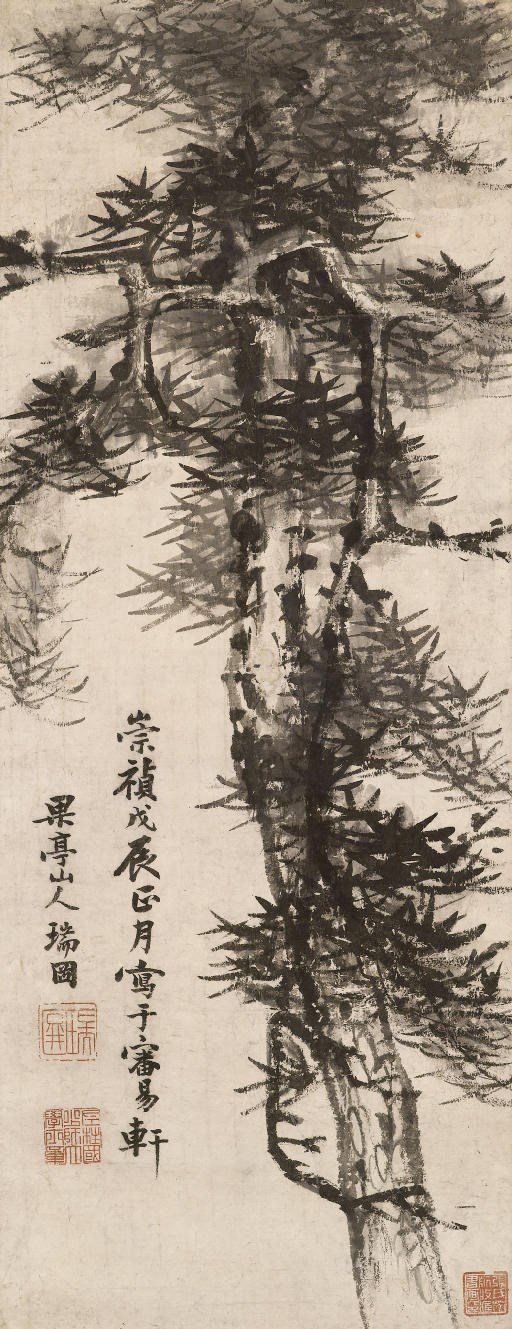 崇禎戊辰正月寫于審易軒
果亭山人瑞圖